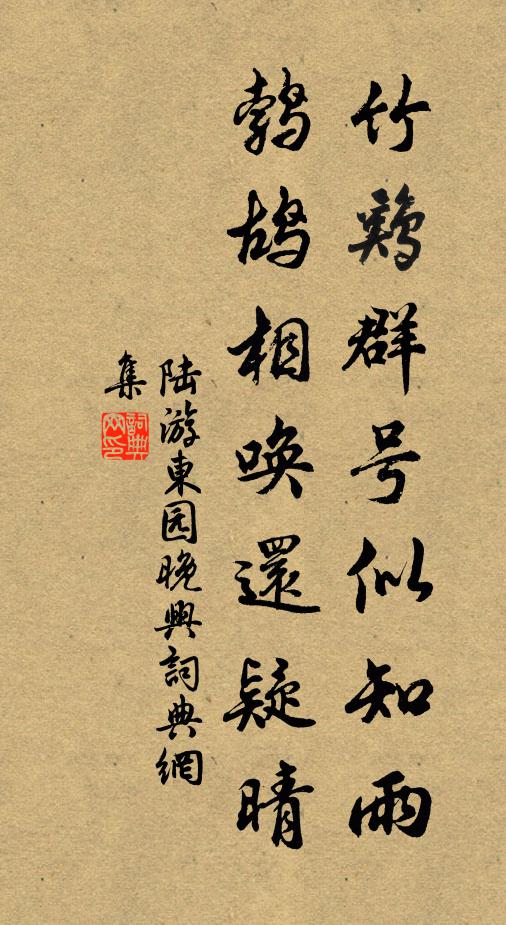 竹鸡群号似知雨
鹁鸪相唤還疑晴
陆游東园晚興詞典網
集
詞典
网印